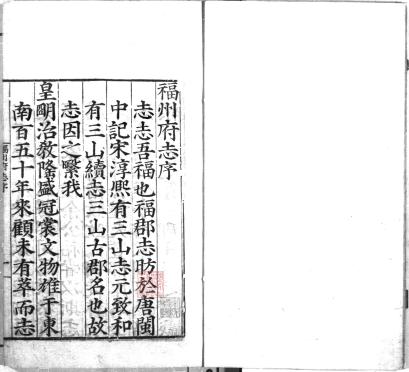 福州府志序
志志吾福也福郡志昉於唐閩
中記宋淳熙有三山志元致和
有三山續志三山古郡名也故
志因之繫我
皇明治教隆盛冠裳文物雄于東
南百五十年來顧未有萃而志